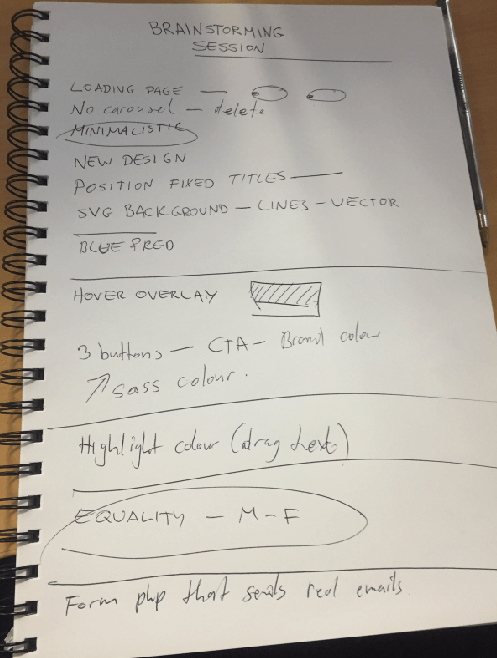 BRAINSTORMING
SESSION
LOADING PAGE —
No carousel — delete
MINIMALISTIC
NEW DESIGN
POSITION FIXED TITLES
SVG BACKGROUND — LINES — VECTOR
HOVER OVERLAY
3 buttons — CTA — Brand colour
sass colour.
Highlight colour (drag text)
EQUALITY — M-F
Form php that sends real emails.